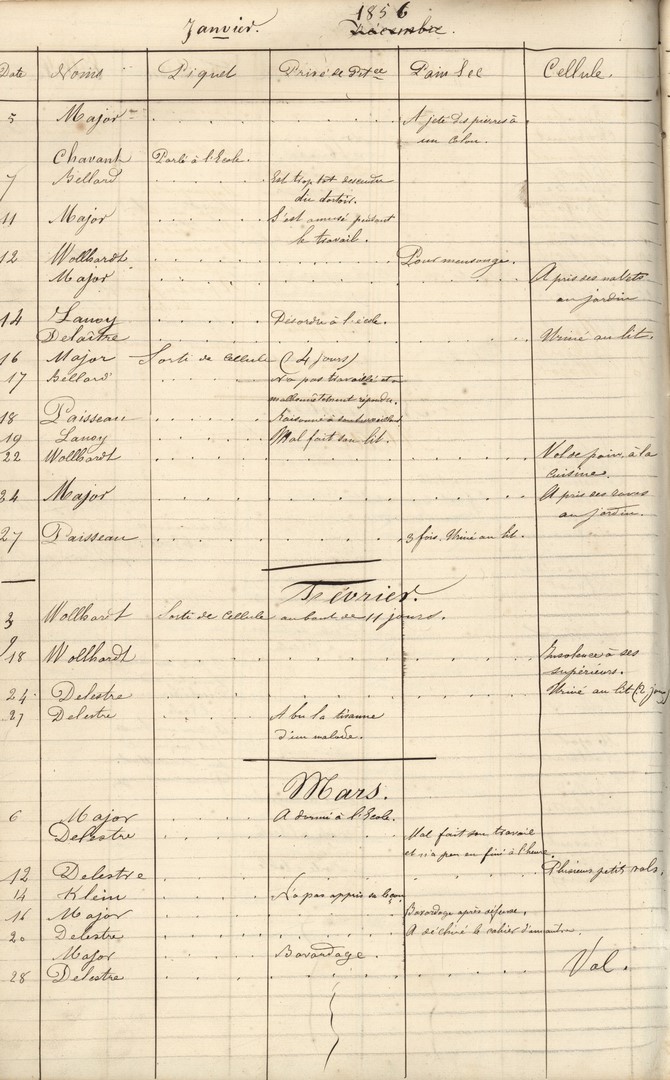 1856
Janvier. Décembre.
Date Noms Piquet Privé de dtee Pain Sec Cellule.
5 Major A jeté des pierres à
un colon.
Chavant Parlé à l'Ecole.
7 Bellard Est trop tot descendu
du dortoir.
11 Major S'est amusé pendant
le travail.
12 Wollhardt Pour mensonge.
Major A pris ses navets
au jardin
14 Lanoy Désordre à l'école.
Delaître Uriné au lit.
16 Major Sorti de Cellule (4 jours)
17 Bellard N'a pas travaillé et a
malhonnêtement répondu.
18 Paisseau Raisonné à son surveillant
19 Lanoy Mal fait son lit.
22 Wollhardt Vol de poire à la
cuisine.
24 Major A pris ses raves
au jardin.
27 Paisseau 3 fois. Uriné au lit.
Février.
3 Wollhardt Sorti de Cellule au bout de 11 jours.
18 Wollhardt Insolence à ses
supérieurs.
24 Delestre Uriné au lit (2 jou)
27 Delestre A bu la tisanne
d'un malade.
Mars.
6 Major A dormi à l'Ecole.
Delestre Mal fait son travail
et n'a pas en fini à l'heure.
12 Delestre Plusieurs petits vols.
14 Klein N'a pas appris sa leçon
16 Major Bavardage après défense.
20 Delestre A déchiré le cahier d'un autre.
Major Bavardage.
28 Delestre Vol.